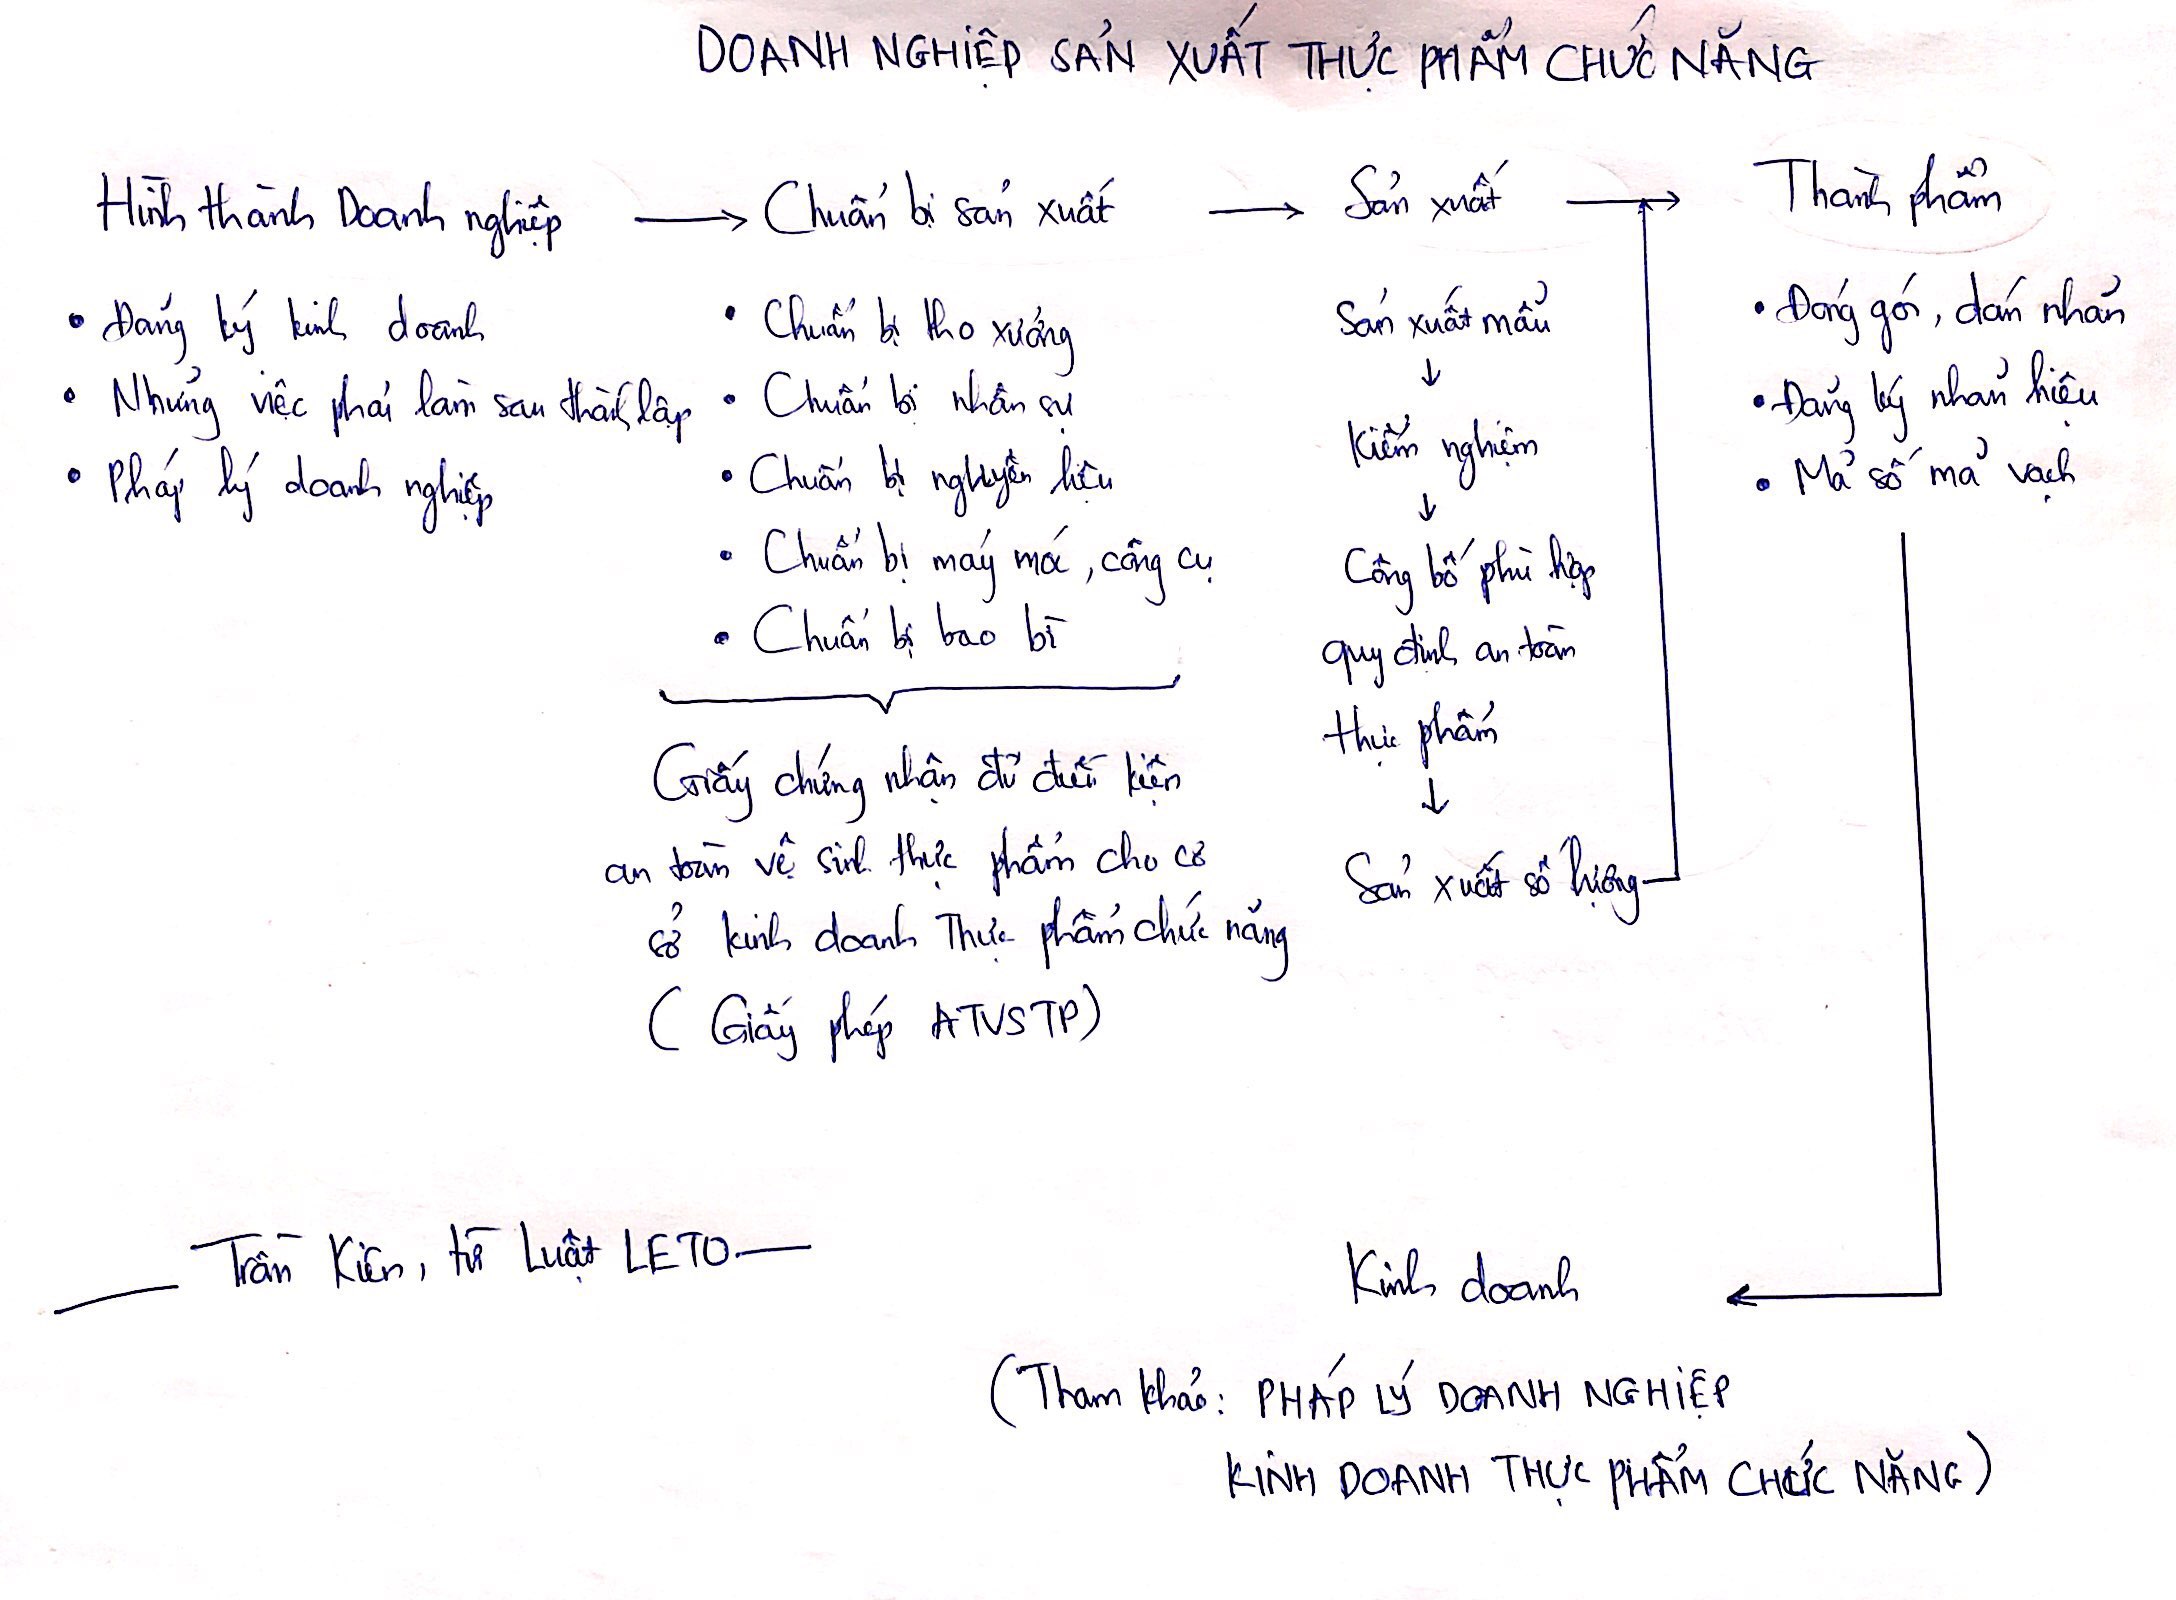 DOANH NGHIỆP SẢN XUẤT THỰC PHẨM CHỨC NĂNG
Hình thành Doanh nghiệp
• Đăng ký kinh doanh
• Những việc phải làm sau thành lập
• Pháp lý doanh nghiệp
Chuẩn bị sản xuất
• Chuẩn bị kho xưởng
• Chuẩn bị nhân sự
• Chuẩn bị nguyên liệu
• Chuẩn bị máy móc, công cụ
• Chuẩn bị bao bì
Giấy chứng nhận đủ điều kiện
an toàn vệ sinh thực phẩm cho cơ
sở kinh doanh Thực phẩm chức năng
(Giấy phép ATVSTP)
Sản xuất
Sản xuất mẫu
Kiểm nghiệm
Công bố phù hợp
quy định an toàn
thực phẩm
Sản xuất số lượng
Thành phẩm
• Đóng gói, dán nhãn
• Đăng ký nhãn hiệu
• Mã số mã vạch
Trần Kiên, từ Luật LETO
Kinh doanh
(Tham khảo: PHÁP LÝ DOANH NGHIỆP
KINH DOANH THỰC PHẨM CHỨC NĂNG)